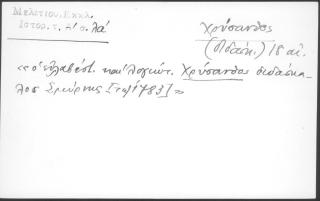 Μελετίου, Εκκλ.
Ιστορ. τ. Α΄ σ. λα΄
Χρύσανθος
(Διδάσκ.) 18 αι.
«ο ευλαβέστ. και λογιώτ. Χρύσανθος διδάσκα-
λος Σμύρνης [1783]»